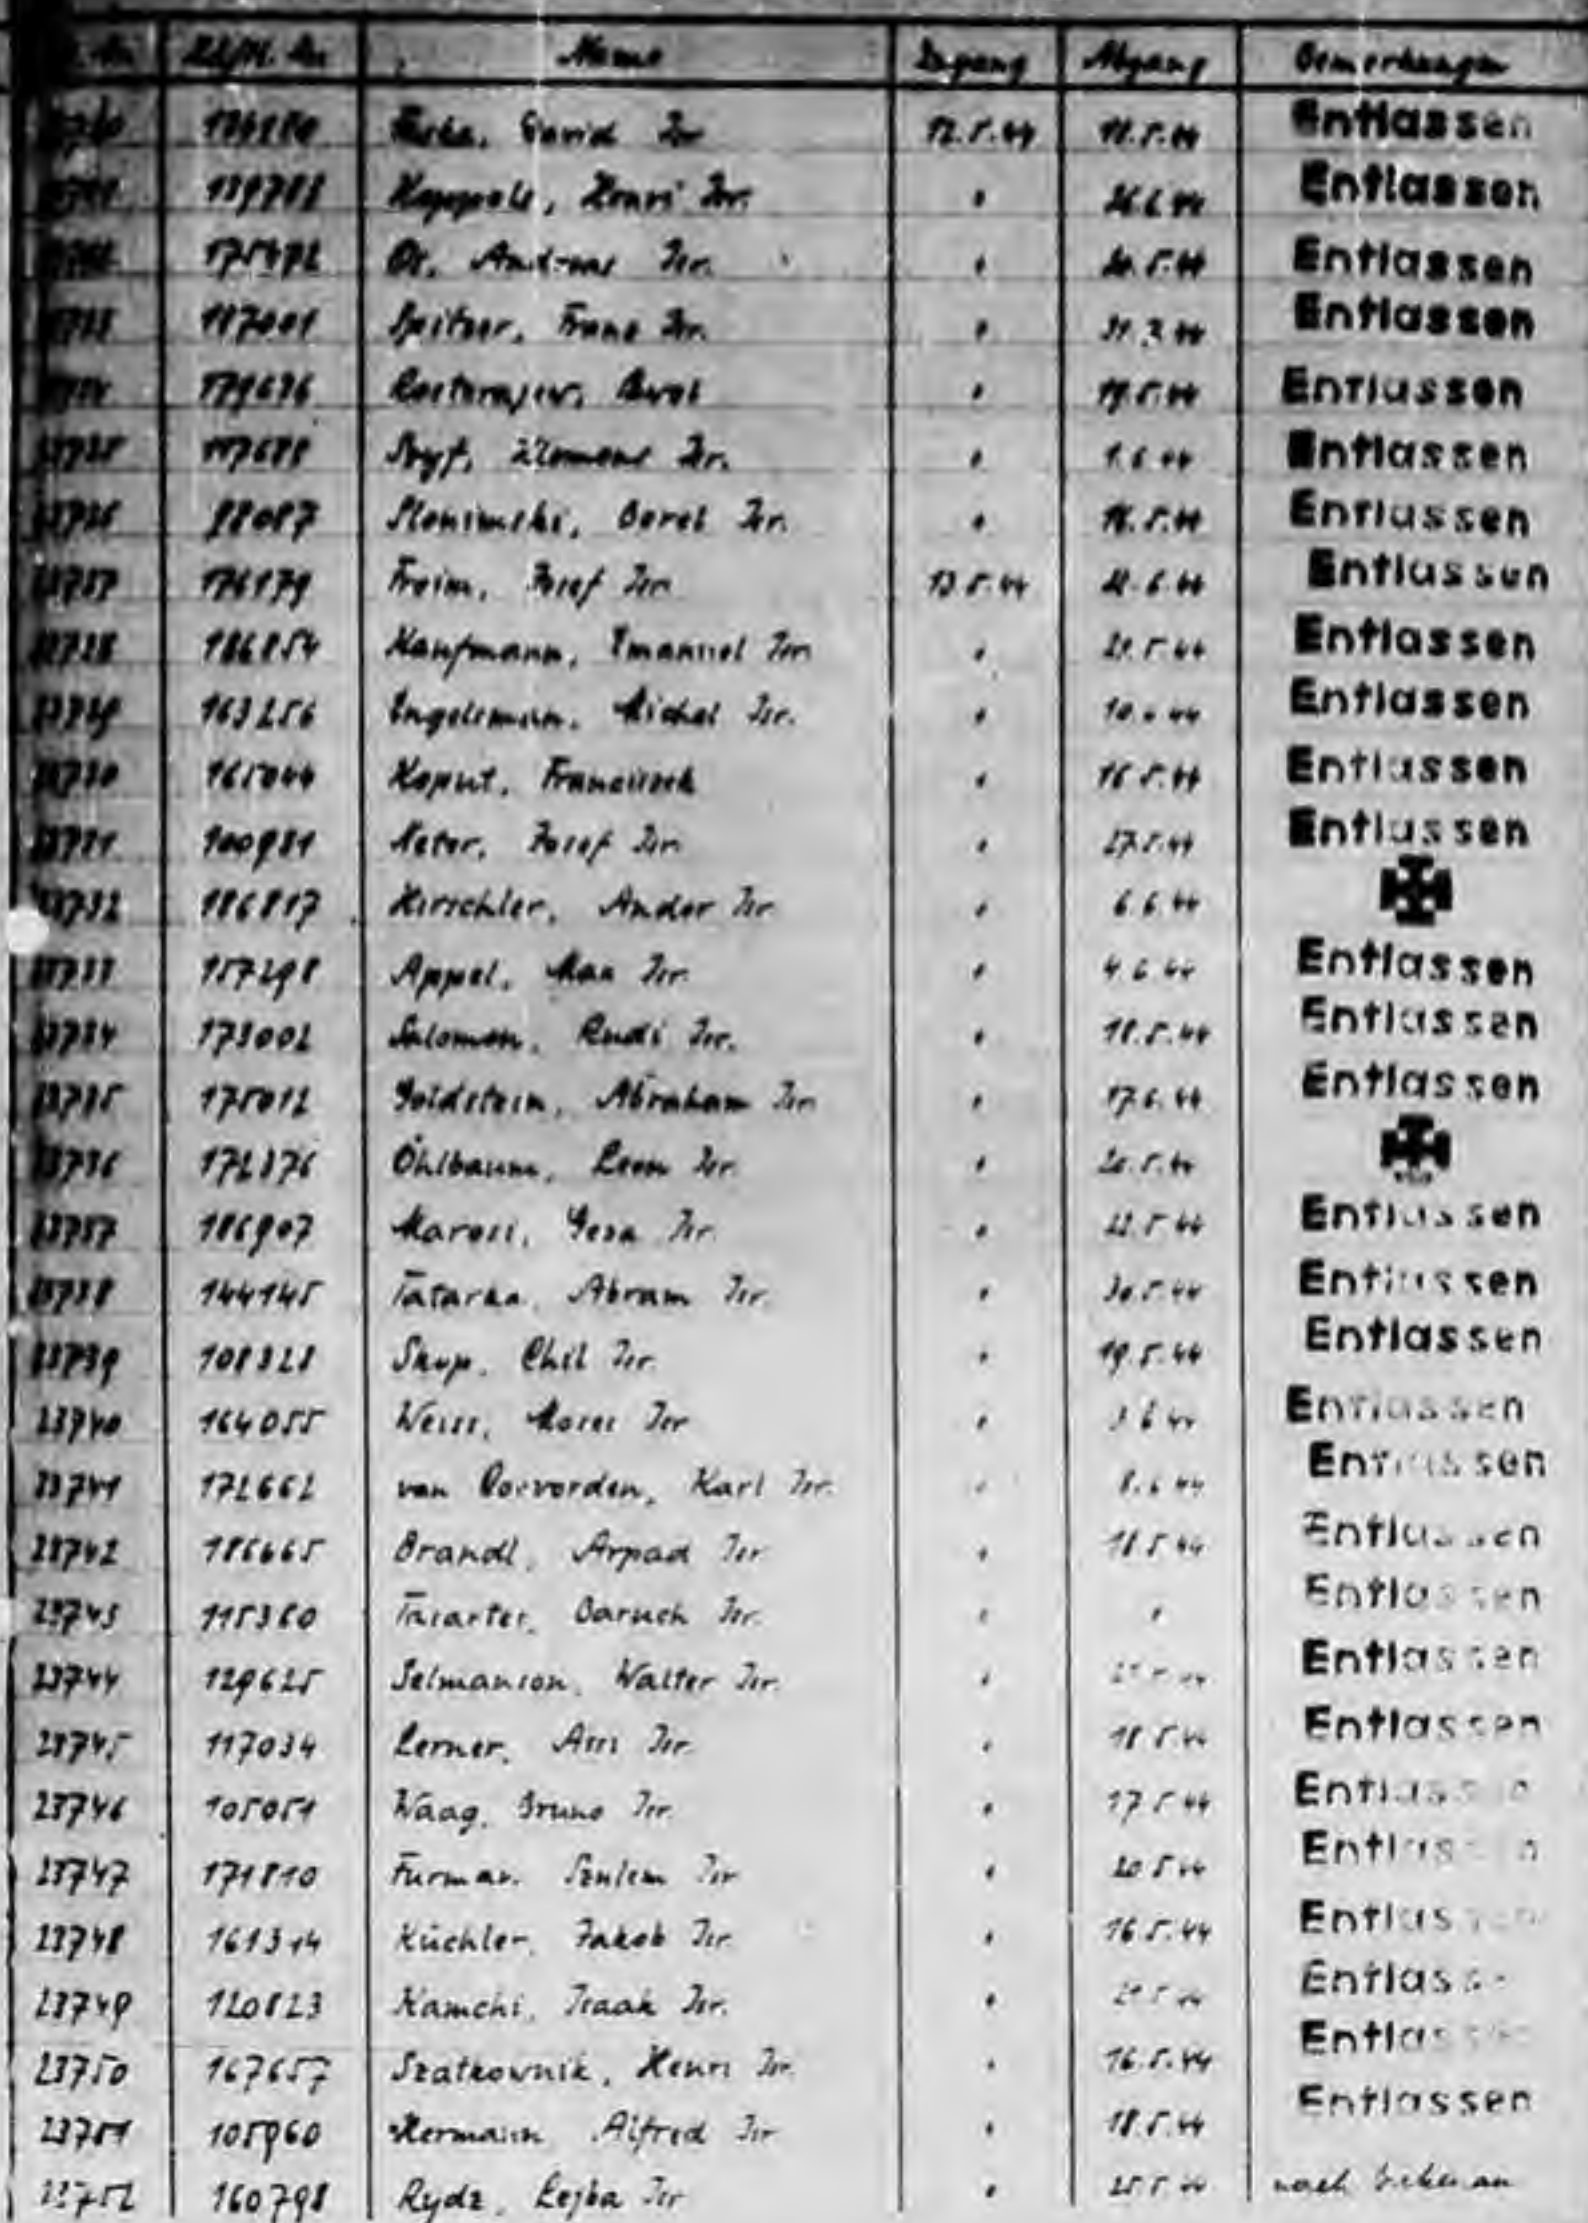 Name Zugang Abgang Bemerkungen
David Isr. 12.5.44 Entlassen
139788 Henri Isr. " Entlassen
175472 Isr. " 20.5.44 Entlassen
117001 Spitzer, Franz Isr. " Entlassen
179676 " 19.5.44 Entlassen
Klemens Isr. " 1.6.44 Entlassen
88087 Slonimski, Berel Isr. " Entlassen
176179 Freim, Josef Isr. 13.5.44 Entlassen
186854 Kaufmann, Emanuel Isr. " 21.5.44 Entlassen
163256 Engelsman, Michel Isr. " Entlassen
165044 Kaput, Franciszek " 16.5.44 Entlassen
100981 Neter, Josef Isr. " 27.5.44 Entlassen
23732 186817 Hirschler, Andor Isr. " 6.6.44
23733 157298 Appel, Max Isr. " 4.6.44 Entlassen
23734 173002 Salomon, Rudi Isr. " 18.5.44 Entlassen
23735 175012 Goldstein, Abraham Isr. " 17.6.44 Entlassen
23736 172376 Öhlbaum, Leon Isr. " 20.5.44
23737 186907 Marosi, Geza Isr. " 22.5.44 Entlassen
23738 144145 Tatarka, Abram Isr. " 30.5.44 Entlassen
23739 108328 Skup, Chil Isr. " 19.5.44 Entlassen
23740 164055 Weiss, Moses Isr. " 3.6.44 Entlassen
23741 172662 van Coevorden, Karl Isr. " 8.6.44 Entlassen
23742 186665 Brandl, Arpad Isr. " 18.5.44 Entlassen
23743 115360 Baruch Isr. " " Entlassen
23744 129625 Selmanson, Walter Isr. " Entlassen
23745 117034 Lerner, Isr. " 18.5.44 Entlassen
23746 105051 Waag, Bruno Isr. " 17.5.44 Entlassen
23747 171810 Furman, Szulem Isr. " 20.5.44 Entlassen
23748 161314 Küchler, Jakob Isr. " 16.5.44 Entlassen
23749 120823 Kamchi, Isaak Isr. " Entlassen
23750 167657 Szatkownik, Henri Isr. " 16.5.44 Entlassen
23751 105960 Hermann Alfred Isr. " 18.5.44 Entlassen
23752 160798 Rydz, Lejba Isr. " 25.5.44 nach Birkenau